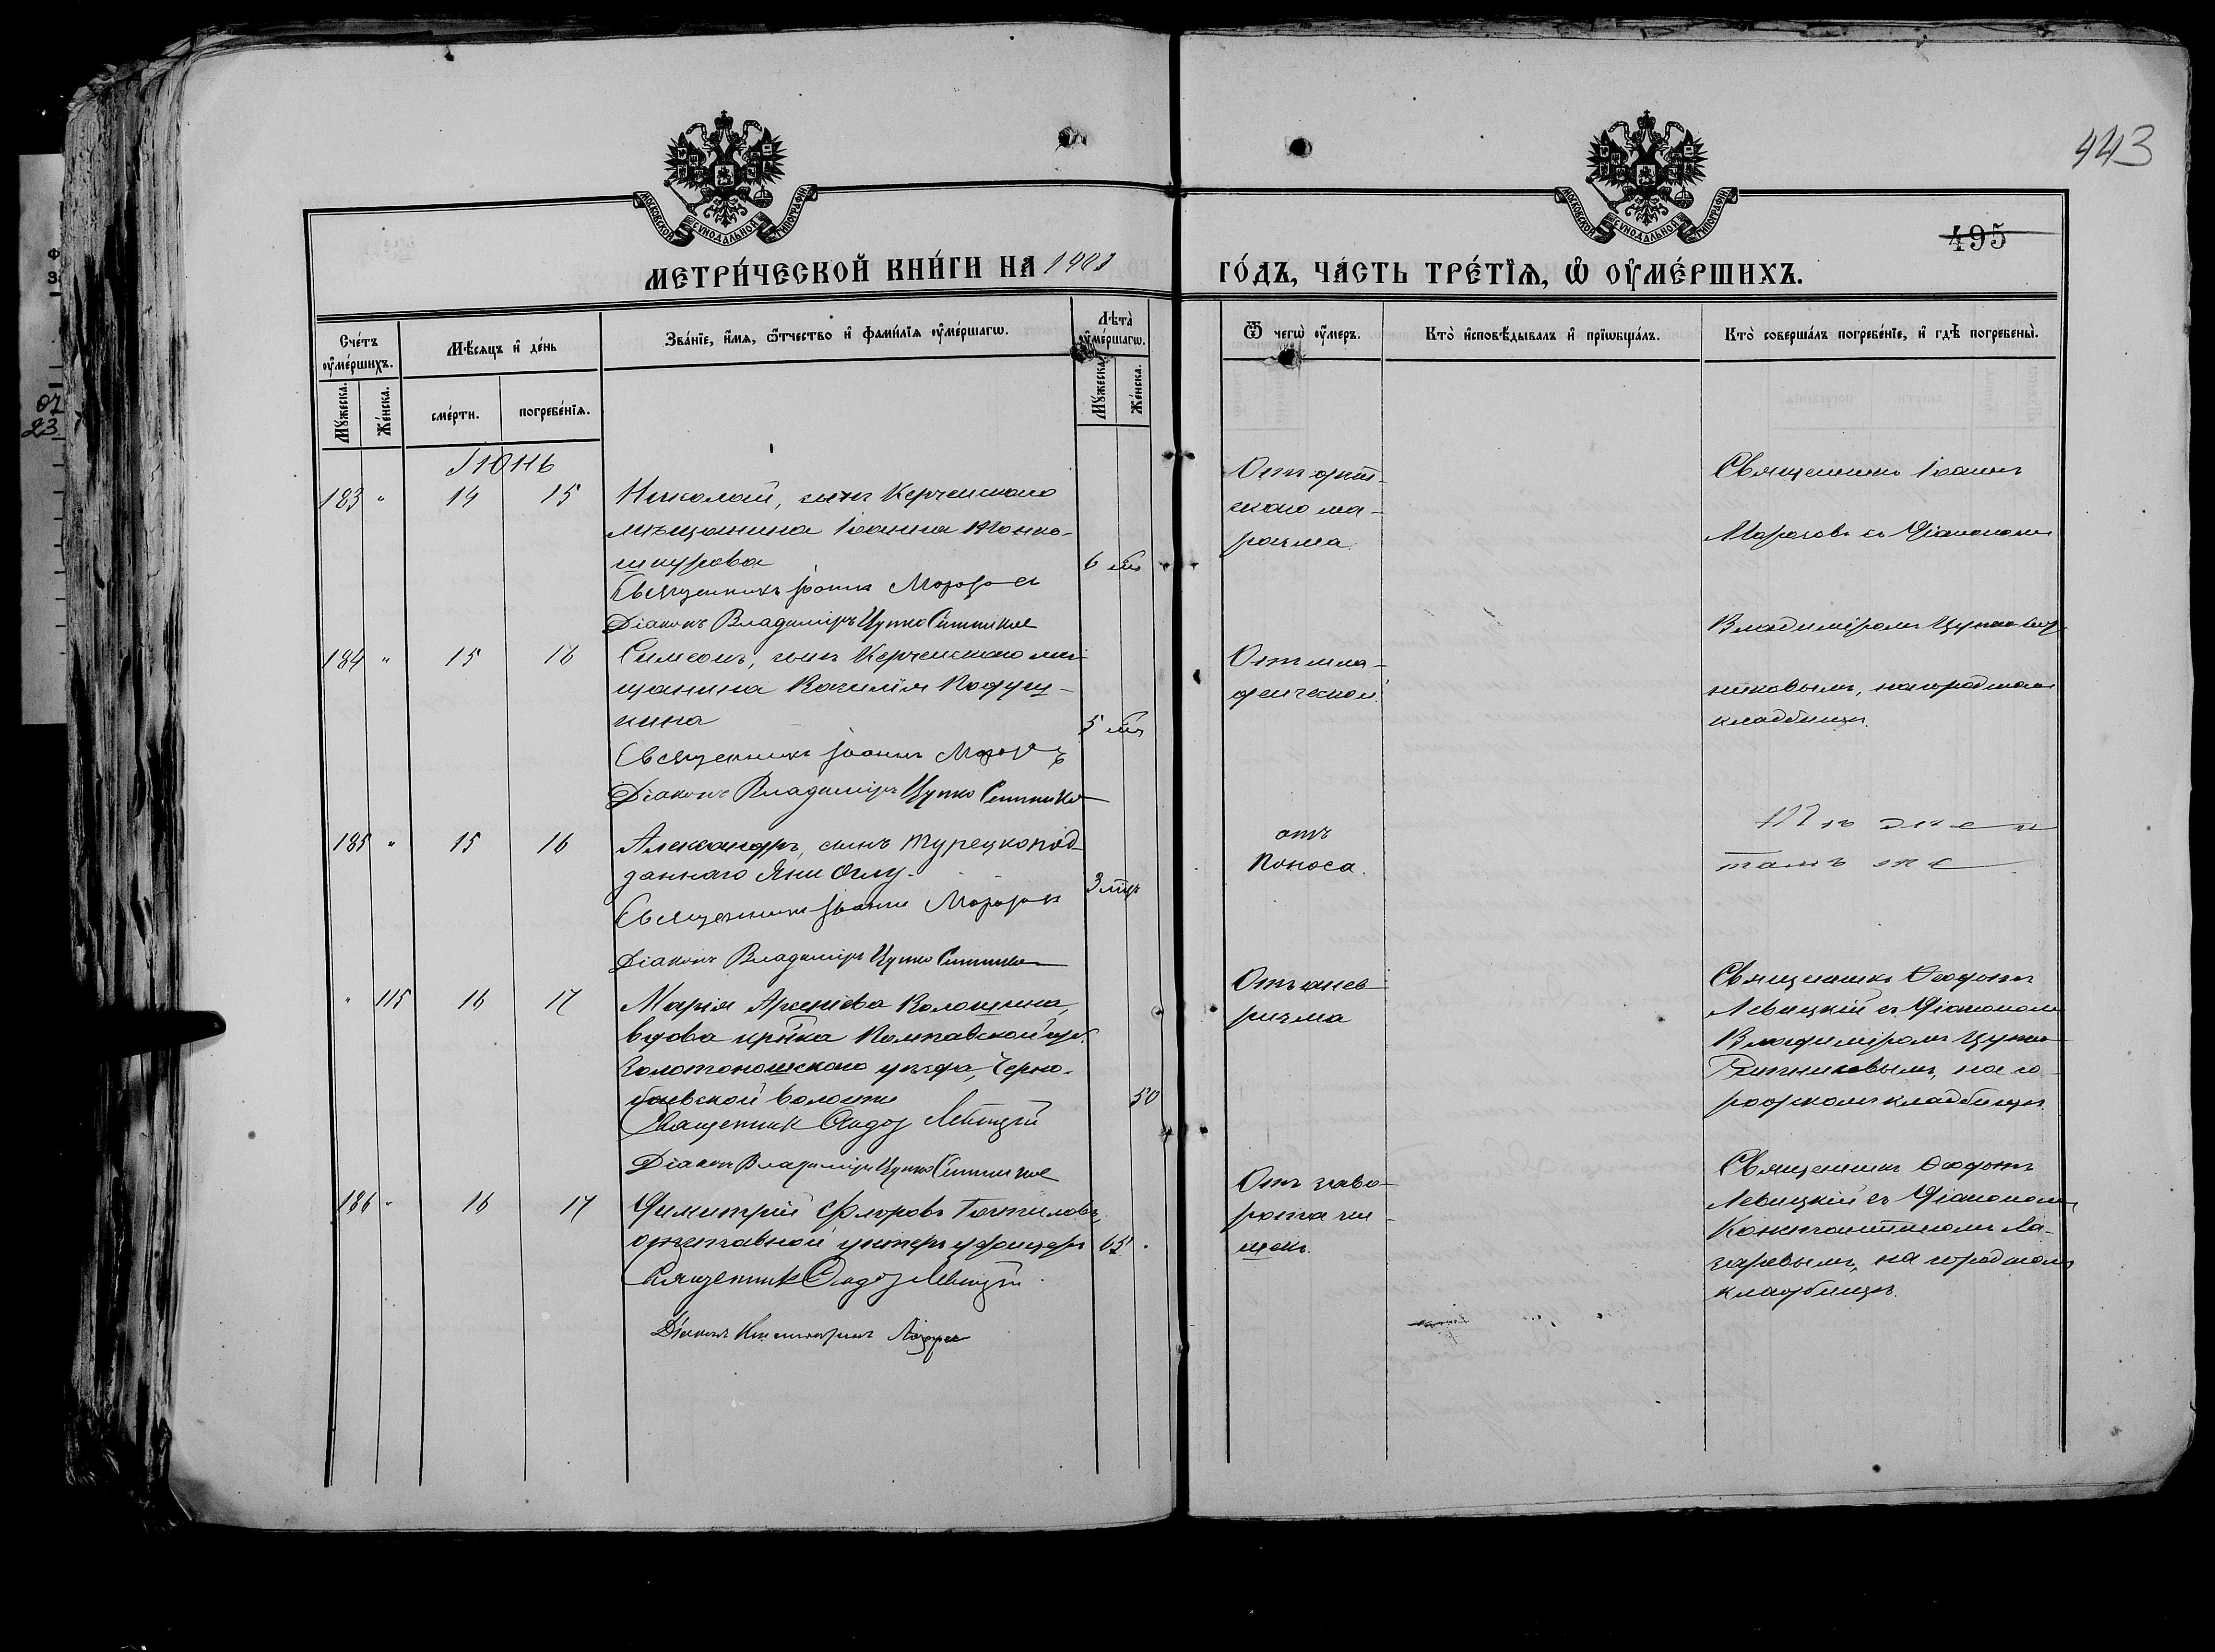 443
495
МОСКОВСКОЙ СУНОДАЛЬНОЙ ТИПОГРАФІИ
МОСКОВСКОЙ СУНОДАЛЬНОЙ ТИПОГРАФІИ
МЕТРИ́ЧЕСКОЙ КНИ́ГИ НА 1903
ГО́ДЪ, ЧА́СТЬ ТРЕ́ТЇѦ, Ѡ҆ ОУ҆МЕ́РШИХЪ.
Сче́тъ оу҆ме́ршихъ.
Мꙋ́жеска.
Же́нска.
Мѣ́сѧцъ и҆ де́нь
сме́рти.
погребе́нїѧ.
Зва́нїе, и҆́мѧ, ѻ҆́тчество и҆ фами́лїѧ оу҆ме́ршагѡ.
Лѣта̀ оу҆ме́ршагѡ.
Мꙋ́жеска.
Же́нска.
Ѿ чегѡ̀ оу҆́меръ.
Кто̀ и҆сповѣ́дывалъ и҆ прїѡбща́лъ.
Кто̀ соверша́лъ погребе́нїе, и҆ гдѣ̀ погребены̀.
Іюнь
183 " 14 15
Николай, сынъ Керченскаго
мѣщанина Іоанна
шкурова
6
Священникъ Іоаннъ Морозов
Діаконъ Владиміръ Цупко Ситников
Отъ дѣт-
скаго ма-
разма.
Священникъ Іоаннъ
Морозовъ съ Діакономъ
Владиміромъ Цупко Сит-
никовымъ, на городскомъ
кладбищѣ.
184 " 15 16
Симеонъ, сынъ Керченскаго мѣ-
щанина Василія
кина
5
Священникъ Іоаннъ Морозовъ
Діаконъ Владиміръ Цупко Ситников
Отъ мла-
денческой.
185 " 15 16
Александръ, сынъ Турецкопод-
даннаго Яни Оглу.
3 мѣс
Священникъ Іоаннъ Морозов
Діаконъ Владиміръ Цупко Ситников
отъ
поноса.
Тѣ же и
тамъ же
" 115 16 17
Марія Арсеніева Волошина,
вдова кр҃ка Полтавской губ.
Золотоношскаго уѣзда, Черно-
баевской волости
50
Священник Ѳеодот Левицкій
Діаконъ Владиміръ Цупко Ситников
Отъ анев-
ризма
Священникъ Ѳеодотъ
Левицкій съ Діакономъ
Владиміромъ Цупко
Ситниковымъ, на го-
родскомъ кладбищѣ
186 " 16 17
Димитрій Флоровъ
отставной унтеръ офицеръ
65
Священник Ѳеодот Левицкій
Діаконъ Константинъ Лазарев
Отъ заво-
рота ки-
шекъ.
Священникъ Ѳеодотъ
Левицкій съ Діакономъ
Константиномъ Ла-
заревымъ, на городскомъ
кладбищѣ.